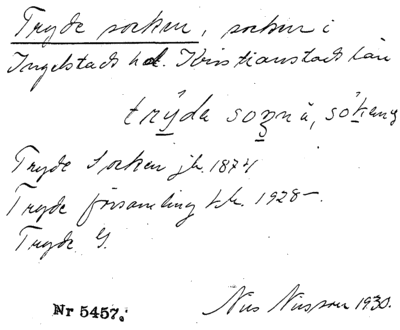 Tryde socken, socken i
Ingelstads hd. Kristianstads län
trýda
Tryde Socken jb. 1874
Tryde församling 1928–
Tryde G.
Nr 5457.
Nils Nilsson 1930.